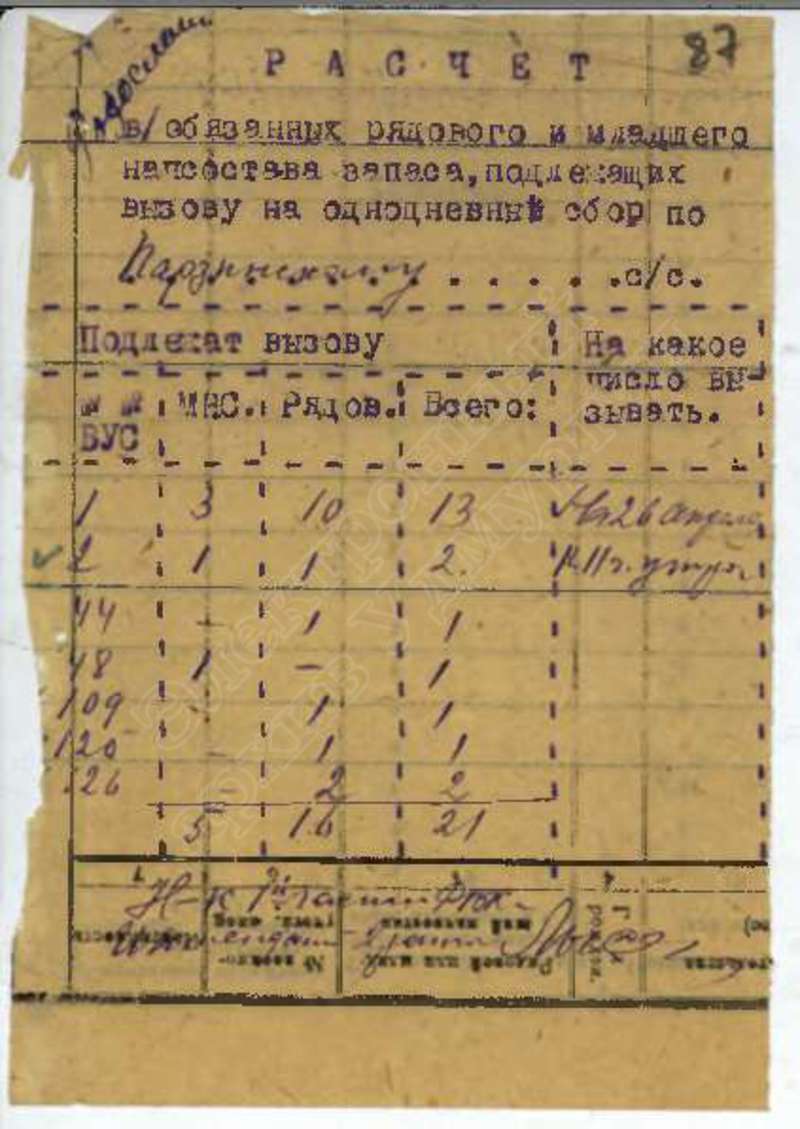 87
РАСЧЕТ
в/обязанных рядового и младшего
начсостава запаса, подлежащих
вызову на однодневный сбор по
Парзинскому . . . . . с/с.
Подлежат вызову
На какое
число вы-
зывать.
№ № МНС. Рядов. Всего:
ВУС
1 3 10 13 На 26 апреля
2 1 1 2. к 11 ч. утра
44 - 1 1
48 1 - 1
109 - 1 1
120 - 1 1
126 - 2 2
5 16 21
Н-к 1й части